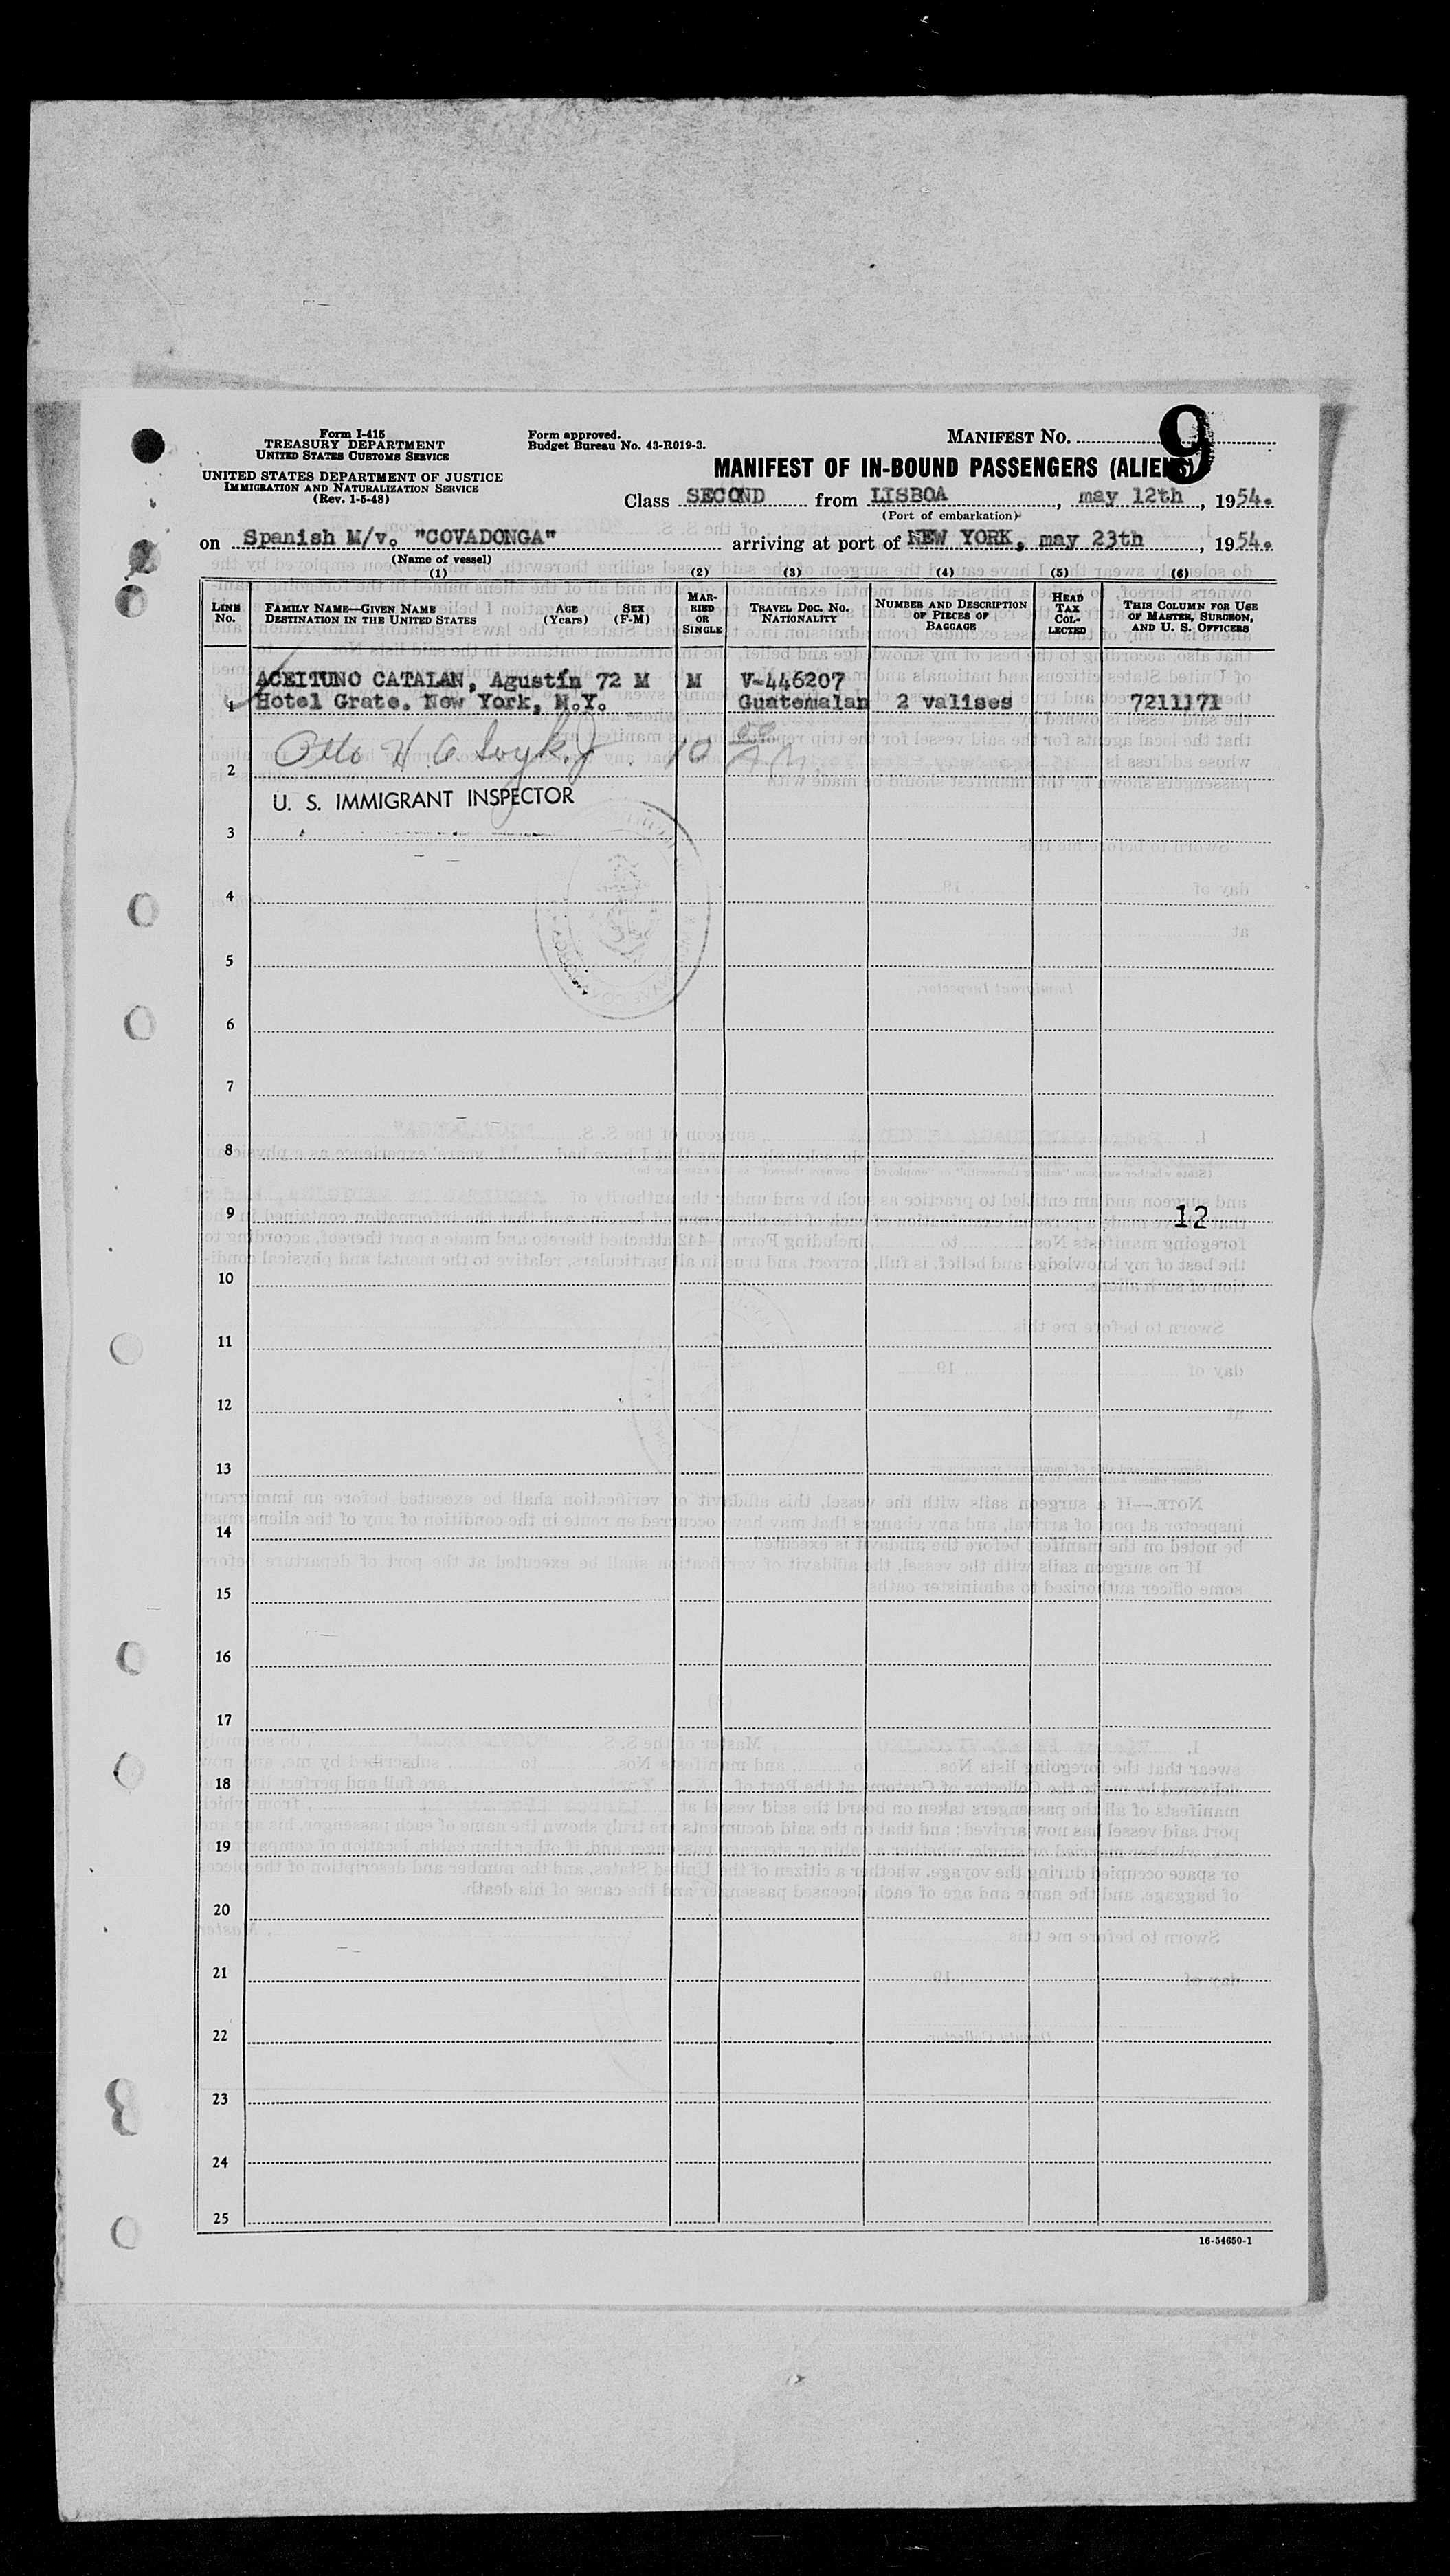 Form I-415
TREASURY DEPARTMENT
UNITED STATES CUSTOMS SERVICE
UNITED STATES DEPARTMENT OF JUSTICE
IMMIGRATION AND NATURALIZATION SERVICE
(Rev. 1-5-48)
Form approved.
Budget Bureau No. 43-R019-3.
MANIFEST NO. 9
MANIFEST OF IN-BOUND PASSENGERS (ALIENS)
Class SECOND from LISBOA, may 12th, 1954.
(Port of embarkation)
on Spanish M/v. "COVADONGA" arriving at port of NEW YORK, may 23th, 1954.
(Name of vessel)
(1) (2) (3) (4) (5) (6)
LINE No. FAMILY NAME—GIVEN NAME DESTINATION IN THE UNITED STATES AGE (Years) SEX (F-M) MARRIED OR SINGLE TRAVEL DOC. NO. NATIONALITY NUMBER AND DESCRIPTION OF PIECES OF BAGGAGE HEAD TAX COLLECTED THIS COLUMN FOR USE OF MASTER, SURGEON, AND U. S. OFFICERS
ACEITUNO CATALAN, Agustín 72 M M V-446207
1 Hotel Grate. New York, N.Y. Guatemalan 2 valises 7211171
2 Otto H 10 AM
U. S. IMMIGRANT INSPECTOR
3
4
5
6
7
8
9 12
10
11
12
13
14
15
16
17
18
19
20
21
22
23
24
25
16-54650-1